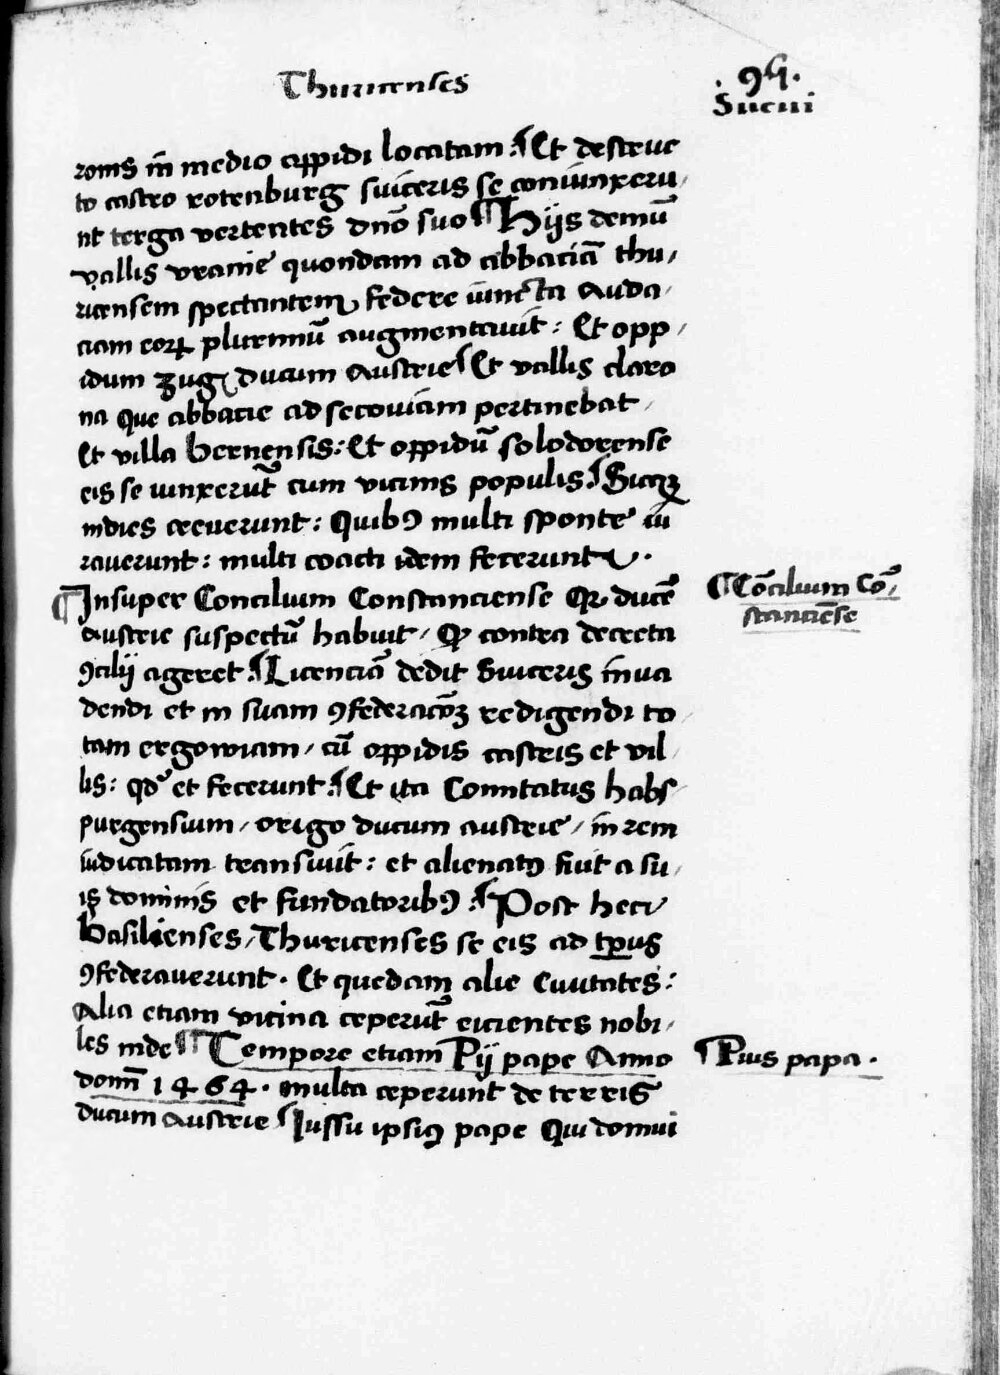 Thuricenses
.94.
Suicui
roms in medio oppidi locatam : Et destruc
to castro rotenburg suiceris se coniunxeru,
nt terga vertentes dnō suo ¶ Hijs demū
vallis vranie quondam ad abbaciā thu,
ricensem spectantem federe iuncta Auda,
ciam eoꝝ plurimū augmentauit : Et opp,
idum zug ducum Austrie Et vallis claro
na que abbacie ad secouiam pertinebat,
Et villa bernensis : Et oppidū solodorense
eis se iunxerūt cum vicinis populis : Sicqꝫ
indies creuerunt : Quibꝰ multi sponte iu
rauerunt : multi coacti idem fecerunt .
¶ Insuper Concilium Constanciense Qꝛ ducē
Austrie suspectū habuit, Qꝛ contra decreta
ꝯcilij ageret : Licenciā dedit Suiceris inua
dendi et in suam ꝯfederacōꝫ redigendi to
tam ergowiam, cū oppidis castris et vil,
lis : qd et fecerunt : Et ita Comitatus habs,
purgensium, origo ducum austrie, in rem
iudicatam transiuit : et alienatꝰ fuit a su,
is dominis et fundatoribꝰ : Post hec
basilienses, Thuricenses se eis ad tp̄us
ꝯfederauerunt . Et quedam alie Ciuitates :
Alia etiam vicina ceperūt eicientes nobi,
les inde ¶ Tempore etiam Pij pape Anno
domī 1464 . multa ceperunt de terris
ducum Austrie Iussu ipsiꝰ pape Qui domui
¶ Cōcilium Cō,
stanciēse
¶ Pius papa .